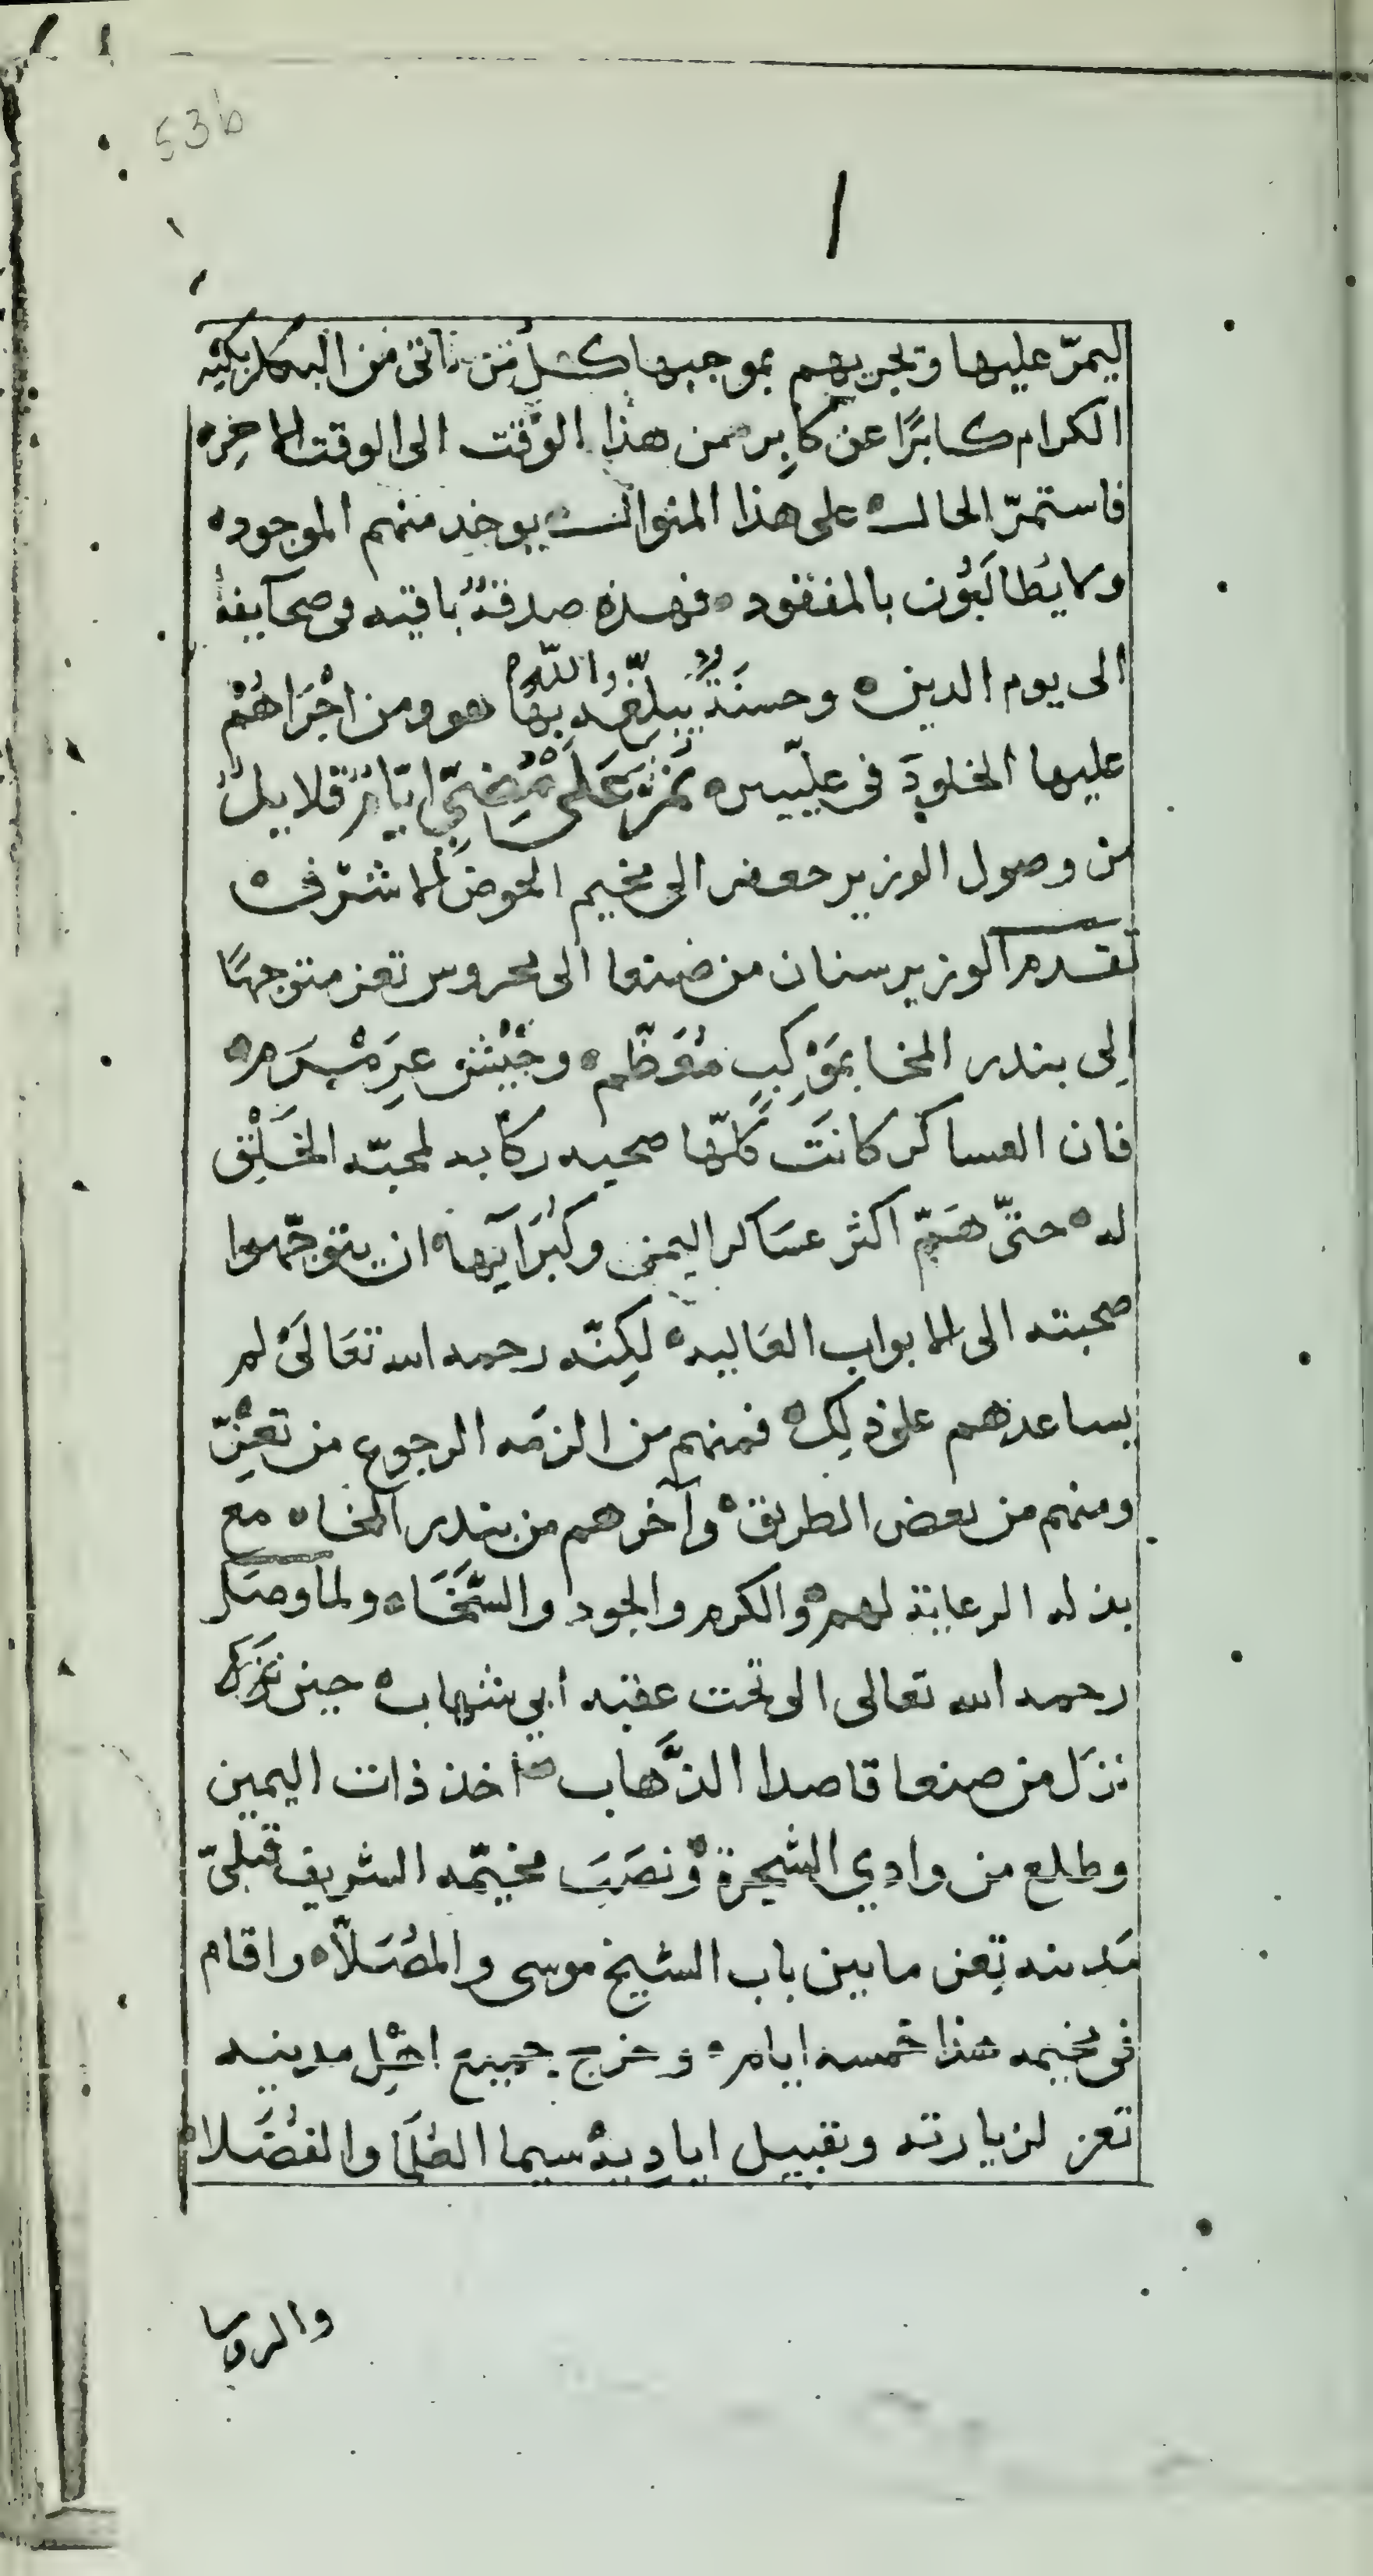 53b
ليمرّ عليها ويجريهم بموجبها كل من ياتى من البكلربكيه
الكرام كابرًا عن كابر من هذا الوقت الى الوقت الاخره
فاستمرّ الحال على هذا المنوال يوخد منهم الموجوده
ولا يُطالَبُون بالمفقود فهذه صدقةٌ باقيه فى صحايفه
الى يوم الدين وحسنةٌ يبلّغه بها والله هو ومن اجْرَاهُم
عليها الخلودَ فى علّيين ثم على مُضِيّ ايّامٍ قلايل
من وصول الوزير جعفر الى مخيم الحوض الاشرف
تقدم الوزير سنان من صنعا الى محروس تعز متوجهًا
إلى بندر المخا بمَوْكِبٍ مُعَظّم وجَيْش عرمرم
فان العساكر كانَت كلّها صحبه ركابه لمحبّه الخَلْق
له حتىّ هَمّ اكثر عسَاكر اليمن وكُبَرَآيها ان يتوجّهوا
صحبته الى الابواب العَاليه لكِنّه رحمه الله تعَالىَ لم
يساعدهم على ذلِك فمنهم من الزمَه الرجوع من تعِزّ
ومنهم من بعض الطريق وآخرهم من بندر المخا مع
بذله الرعاية لهم والكرم والجود والسَّخَا ولما وصَل
رحمه الله تعالى الى تحت عقبه ابي شهاب حين نَزَل
نزَل من صنعا قاصدا الذَّهاب اخذ ذات اليمين
وطلع من وادي الشجرة ونصَبَ مخيّمه الشريف قبليّ
مَدينه تعِز مابين باب الشيخ موسى والمصَلاّ واقام
فى مخيمه هذا خمسه ايام وخرج جميع اهْل مدينه
تعز لزيارته وتقبيل اياديه سيما العُلَمَا والفُضَلا
والروسا